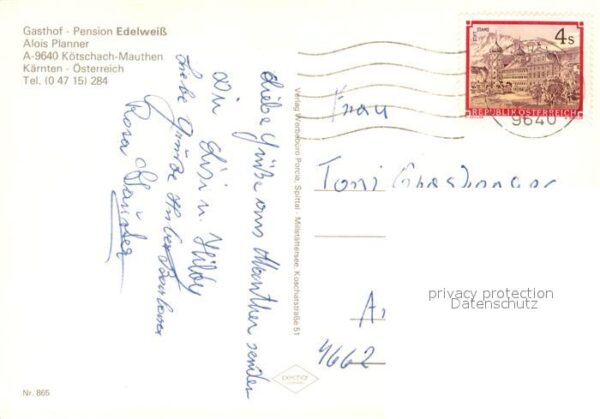 Gasthof - Pension Edelweiß
Alois Planner
A-9640 Kötschach-Mauthen
Kärnten - Österreich
Tel. (0 47 15) 284
Liebe Grüße aus Mauthen senden
Dir Lisi u. Hilby
Liebe Grüße
Rosa
Nr. 865
Verlag Werbebüro Porcia, Spittal - Millstättersee, Koschatstraße 51
STIFT STAMS
4 S
REPUBLIK ÖSTERREICH
9640
Frau
Toni
4662
privacy protection
Datenschutz